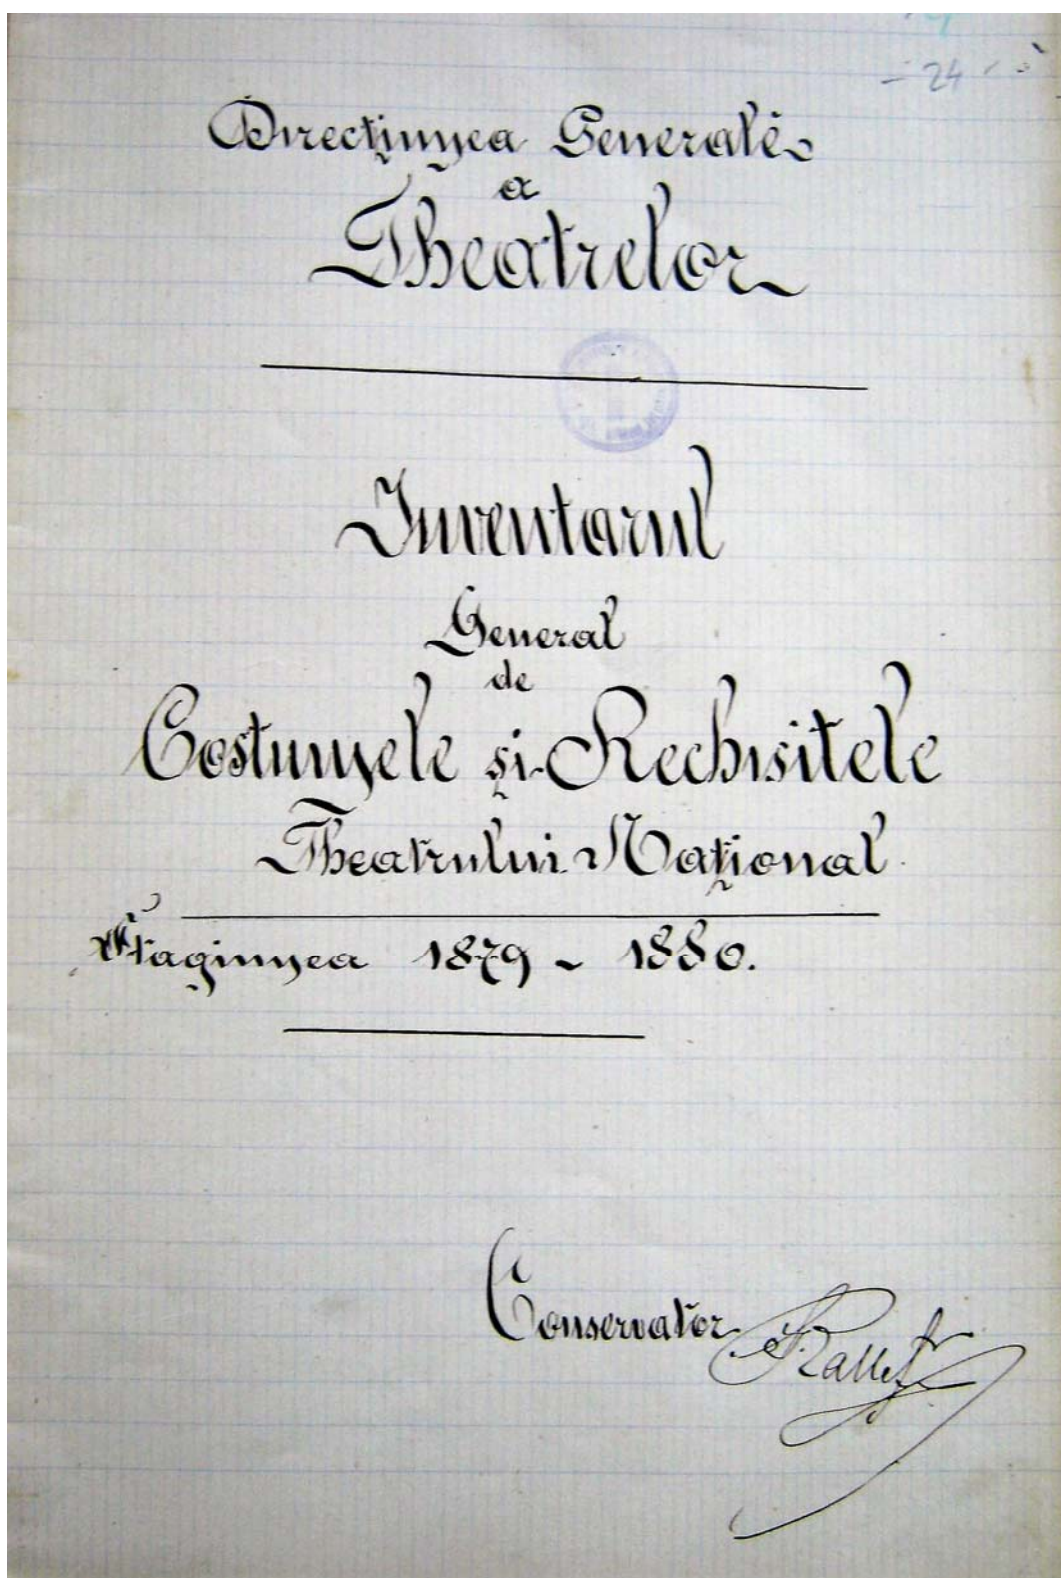 - 24
Direcţiunea Generalĕ
a
Theatrelor
Inventarul
General
de
Costumele şi Rechisitele
Theatrului Naţional
Stagiunea 1879 - 1880.
Conservator